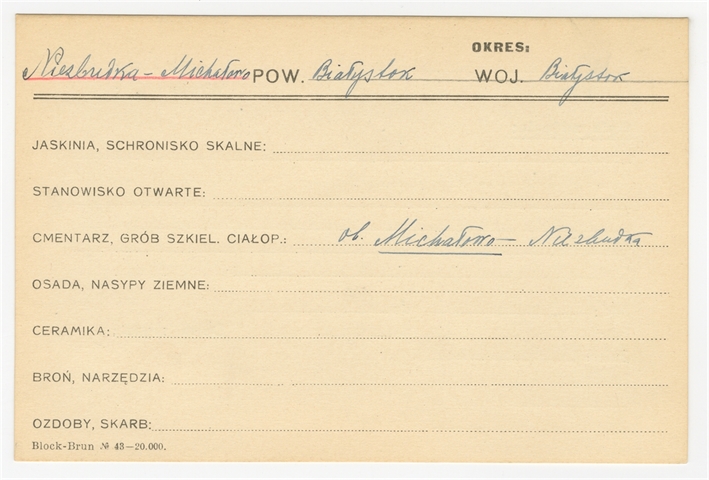 OKRES:
Niezbudka - Michałowo POW. Białystok WOJ. Białystok
JASKINIA, SCHRONISKO SKALNE:
STANOWISKO OTWARTE:
CMENTARZ, GRÓB SZKIEL. CIAŁOP.: ob. Michałowo - Niezbudka
OSADA, NASYPY ZIEMNE:
CERAMIKA:
BROŃ, NARZĘDZIA:
OZDOBY, SKARB:
Block-Brun № 43—20.000.